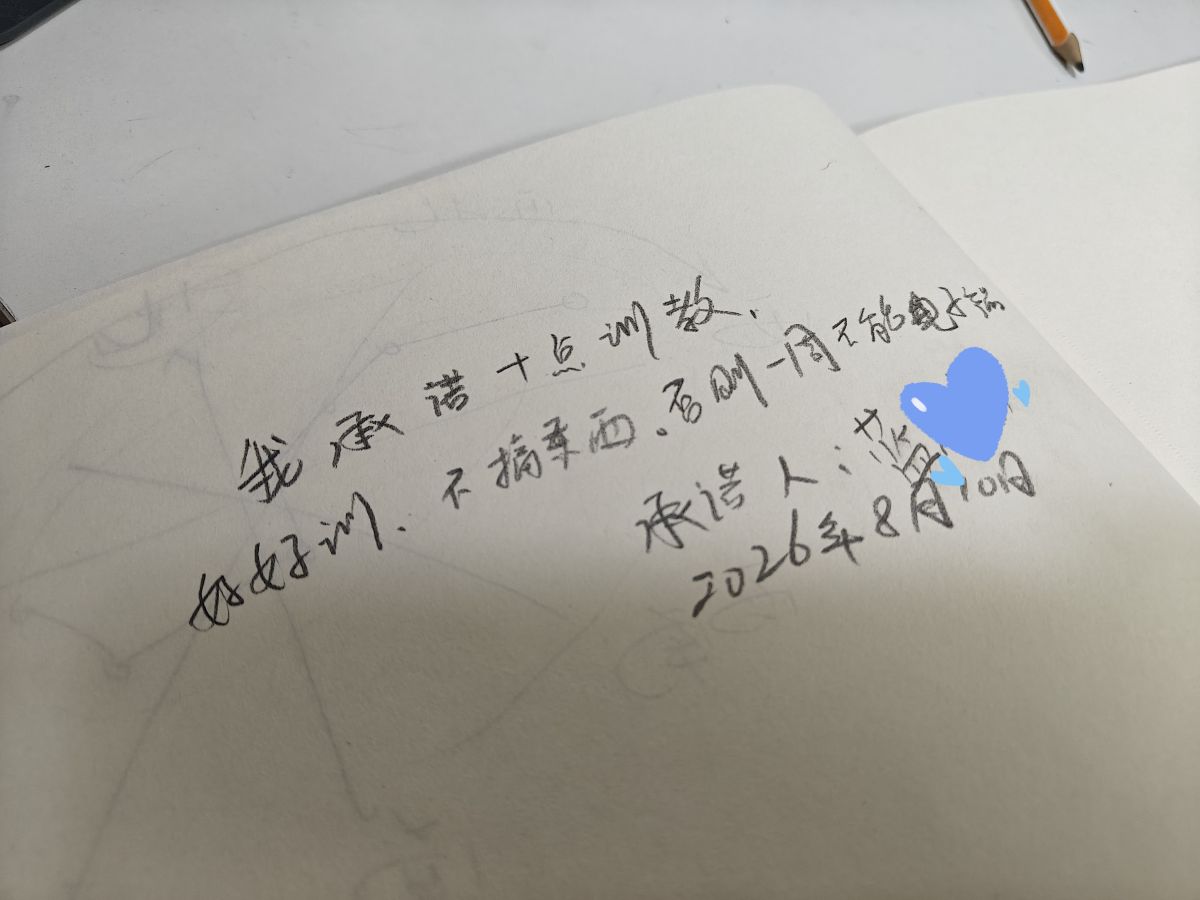 我承诺十点训教、
好好训、不搞东西.否则一周不能电子锅
承诺人:蓝
2026年8月10日